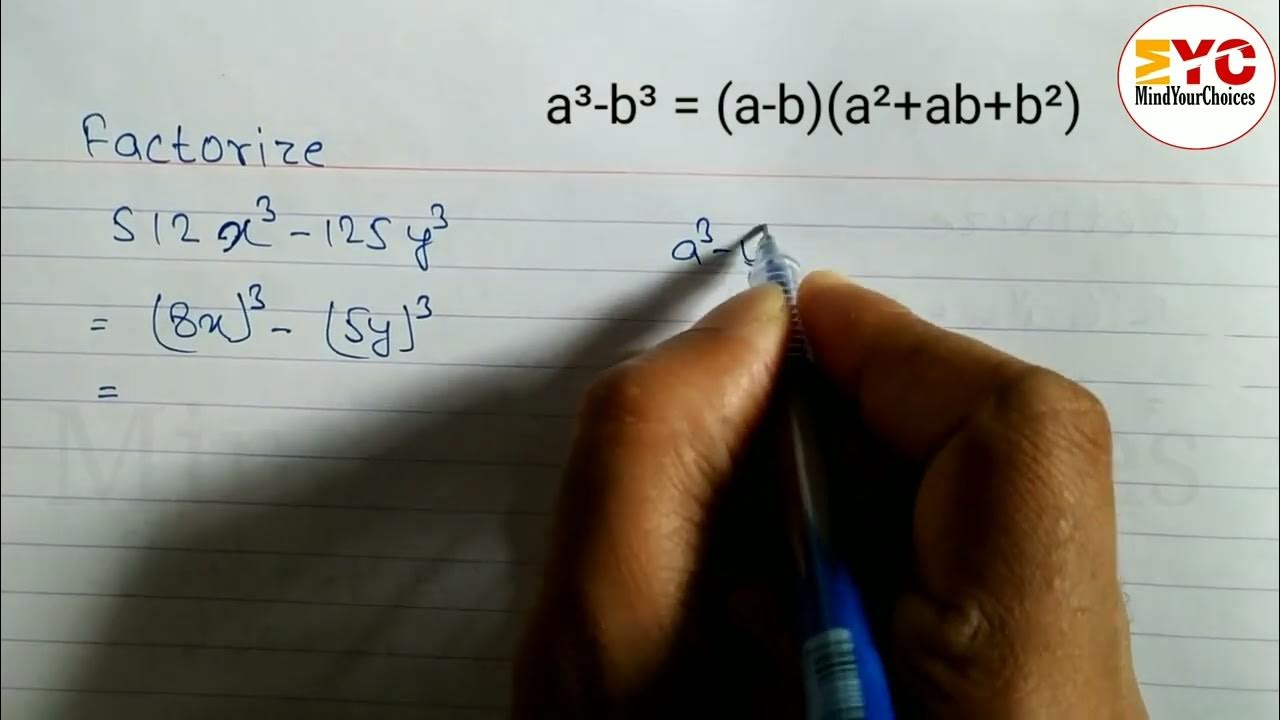 MYC
MindYourChoices
a³-b³ = (a-b)(a²+ab+b²)
Factorize
512x³ - 125y³
= (8x)³ - (5y)³
=
a³ -